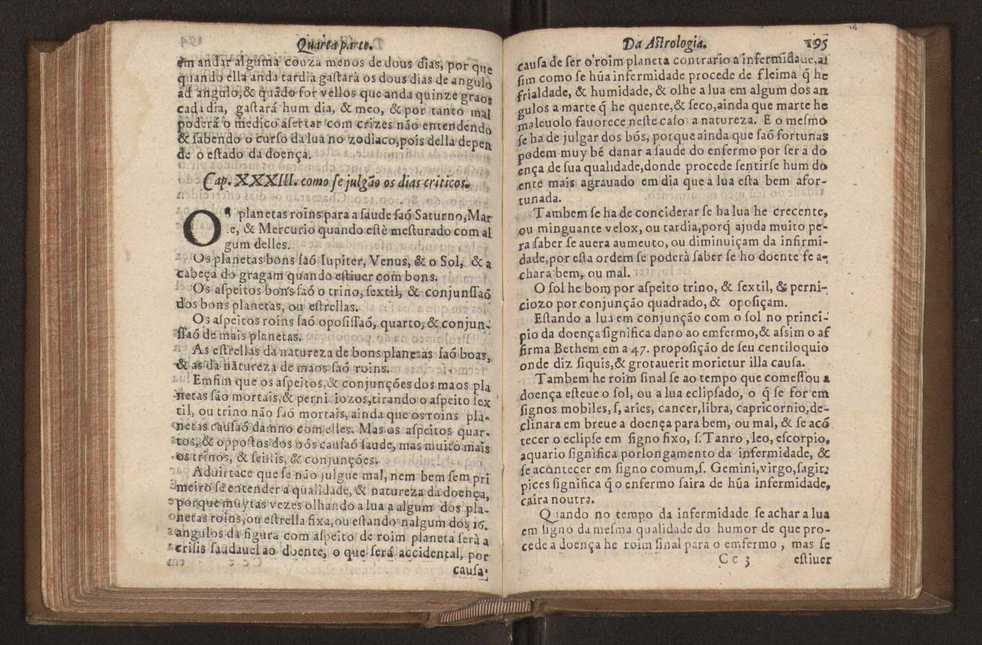 Quarta parte.
em andar alguma couza menos de dous dias, por que
quando ella anda tardia gastará os dous dias de angulo
ad angulo, & quãdo for vellos que anda quinze graos
cadidia, gastará hum dia, & meo, & por tanto mal
poderá o medico asertar com crizes não entendendo
& sabendo o curso da lua no zodiaco, pois della depen
de o estado da doença.
Cap. XXXIII. como se julgão os dias criticos.
Os planetas roins para a saude saó Saturno, Mar
te, & Mercurio quando estè mesturado com al
gum delles.
Os planetas bons saó Iupiter, Venus, & o Sol, & a
cabeça do gragam quando estiuer com bons.
Os aspeitos bons saó o trino, sextil, & conjunssaõ
dos bons planetas, ou estrellas.
Os aspeitos roins saó opossissaó, quarto, & conjun-
ssaõ de mais planetas.
As estrellas da natureza de bons planetas saó boas,
& as da natureza de maos saó roins.
Emfim que os aspeitos, & conjunções dos maos pla
netas são mortais, & perniciozos, tirando o aspeito sex
til, ou trino não saó mortais, ainda que os roins pla-
netas causaó damno com elles. Mas os aspeitos quar-
tos, & oppostos dos bós causaó saude, mas muito mais
os trinos, & seistis, & conjunções.
Aduirtace que se não julgue mal, nem bem sem pri
meiro se entender a qualidade, & natureza da doença,
porque muytas vezes olhando a lua a algum dos pla-
netas roins, ou estrella fixa, ou estando nalgum dos 16.
angulos da figura com aspeito de roim planeta será a
crisis saudauel ao doente, o que será accidental, por
causa
Da Astrologia. 195
causa de ser o roim planeta contrario a infermidade, as
sim como se húa infermidade procede de fleima q̃ he
frialdade, & humidade, & olhe a lua em algum dos an
gulos a marte q̃ he quente, & seco, ainda que marte he
maleuolo fauorece neste caso a natureza. E o mesmo
se ha de julgar dos bós, porque ainda que saó fortunas
podem muy bé danar a saude do enfermo por ser a do
ença de sua qualidade, donde procede sentirse hum do
ente mais agrauado em dia que a lua esta bem afor-
tunada.
Tambem se ha de conciderar se ha lua he crecente,
ou minguante velox, ou tardia, porq̃ ajuda muito pe-
ra saber se auera aumeuto, ou diminuiçam da infirmi-
dade, por esta ordem se poderà saber se ho doente se a-
chara bem, ou mal.
O sol he bom por aspeito trino, & sextil, & perni-
ciozo por conjunção quadrado, & oposiçam.
Estando a lua em conjunção com o sol no princi-
pio da doença significa dano ao emfermo, & assim o af
firma Bethem em a 47. proposição de seu centiloquio
onde diz siquis, & grotauerit morietur illa causa.
Tambem he roim sinal se ao tempo que comessou a
doença esteue o sol, ou a lua eclipsado, o q̃ se for em
signos mobiles, s, aries, cancer, libra, capricornio, de-
clinara em breue a doença para bem, ou mal, & se acó
tecer o eclipse em signo fixo, s. Tanro, leo, escorpio,
aquario significa porlongamento da infermidade, &
se acontecer em signo comum, s. Gemini, virgo, sagit,
pices significa q̃ o enfermo saira de húa infermidade,
caira noutra.
Quando no tempo da infermidade se achar a lua
em signo da mesma qualidade do humor de que pro-
cede a doença he roim sinal para o emfermo, mas se
Cc 3 estiuer